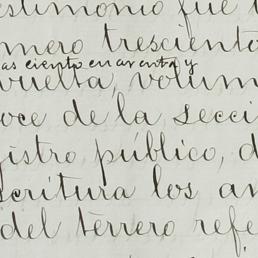 estimonio fue
mero tresciento
as ciento cuarenta y
vuelta, volum
oce de la secci
gistro público, d
scritura los an
del terrero refe